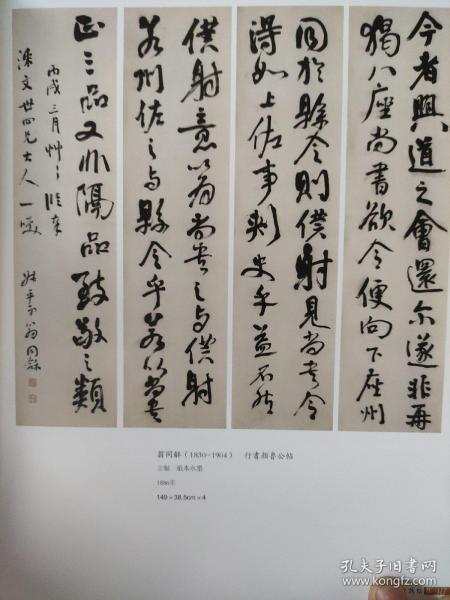 今者興道之會還尔遂非再
猲八座尚書欲令便向下座州
同於縣令則僕射見尚書令
得如上佐事刺史乎益不然
僕射意以為尚書之与僕射
若州佐之与縣令乎若以尚書
正三品又非隔品致敬之類
丙戌三月艸艸臨奉
文世四兄大人一噱
叔平弟翁同龢
翁同龢（1830-1904） 行書顏魯公帖
立軸 紙本水墨
1886年
149×38.5cm×4
孔夫子旧书网
www.kongfz.com